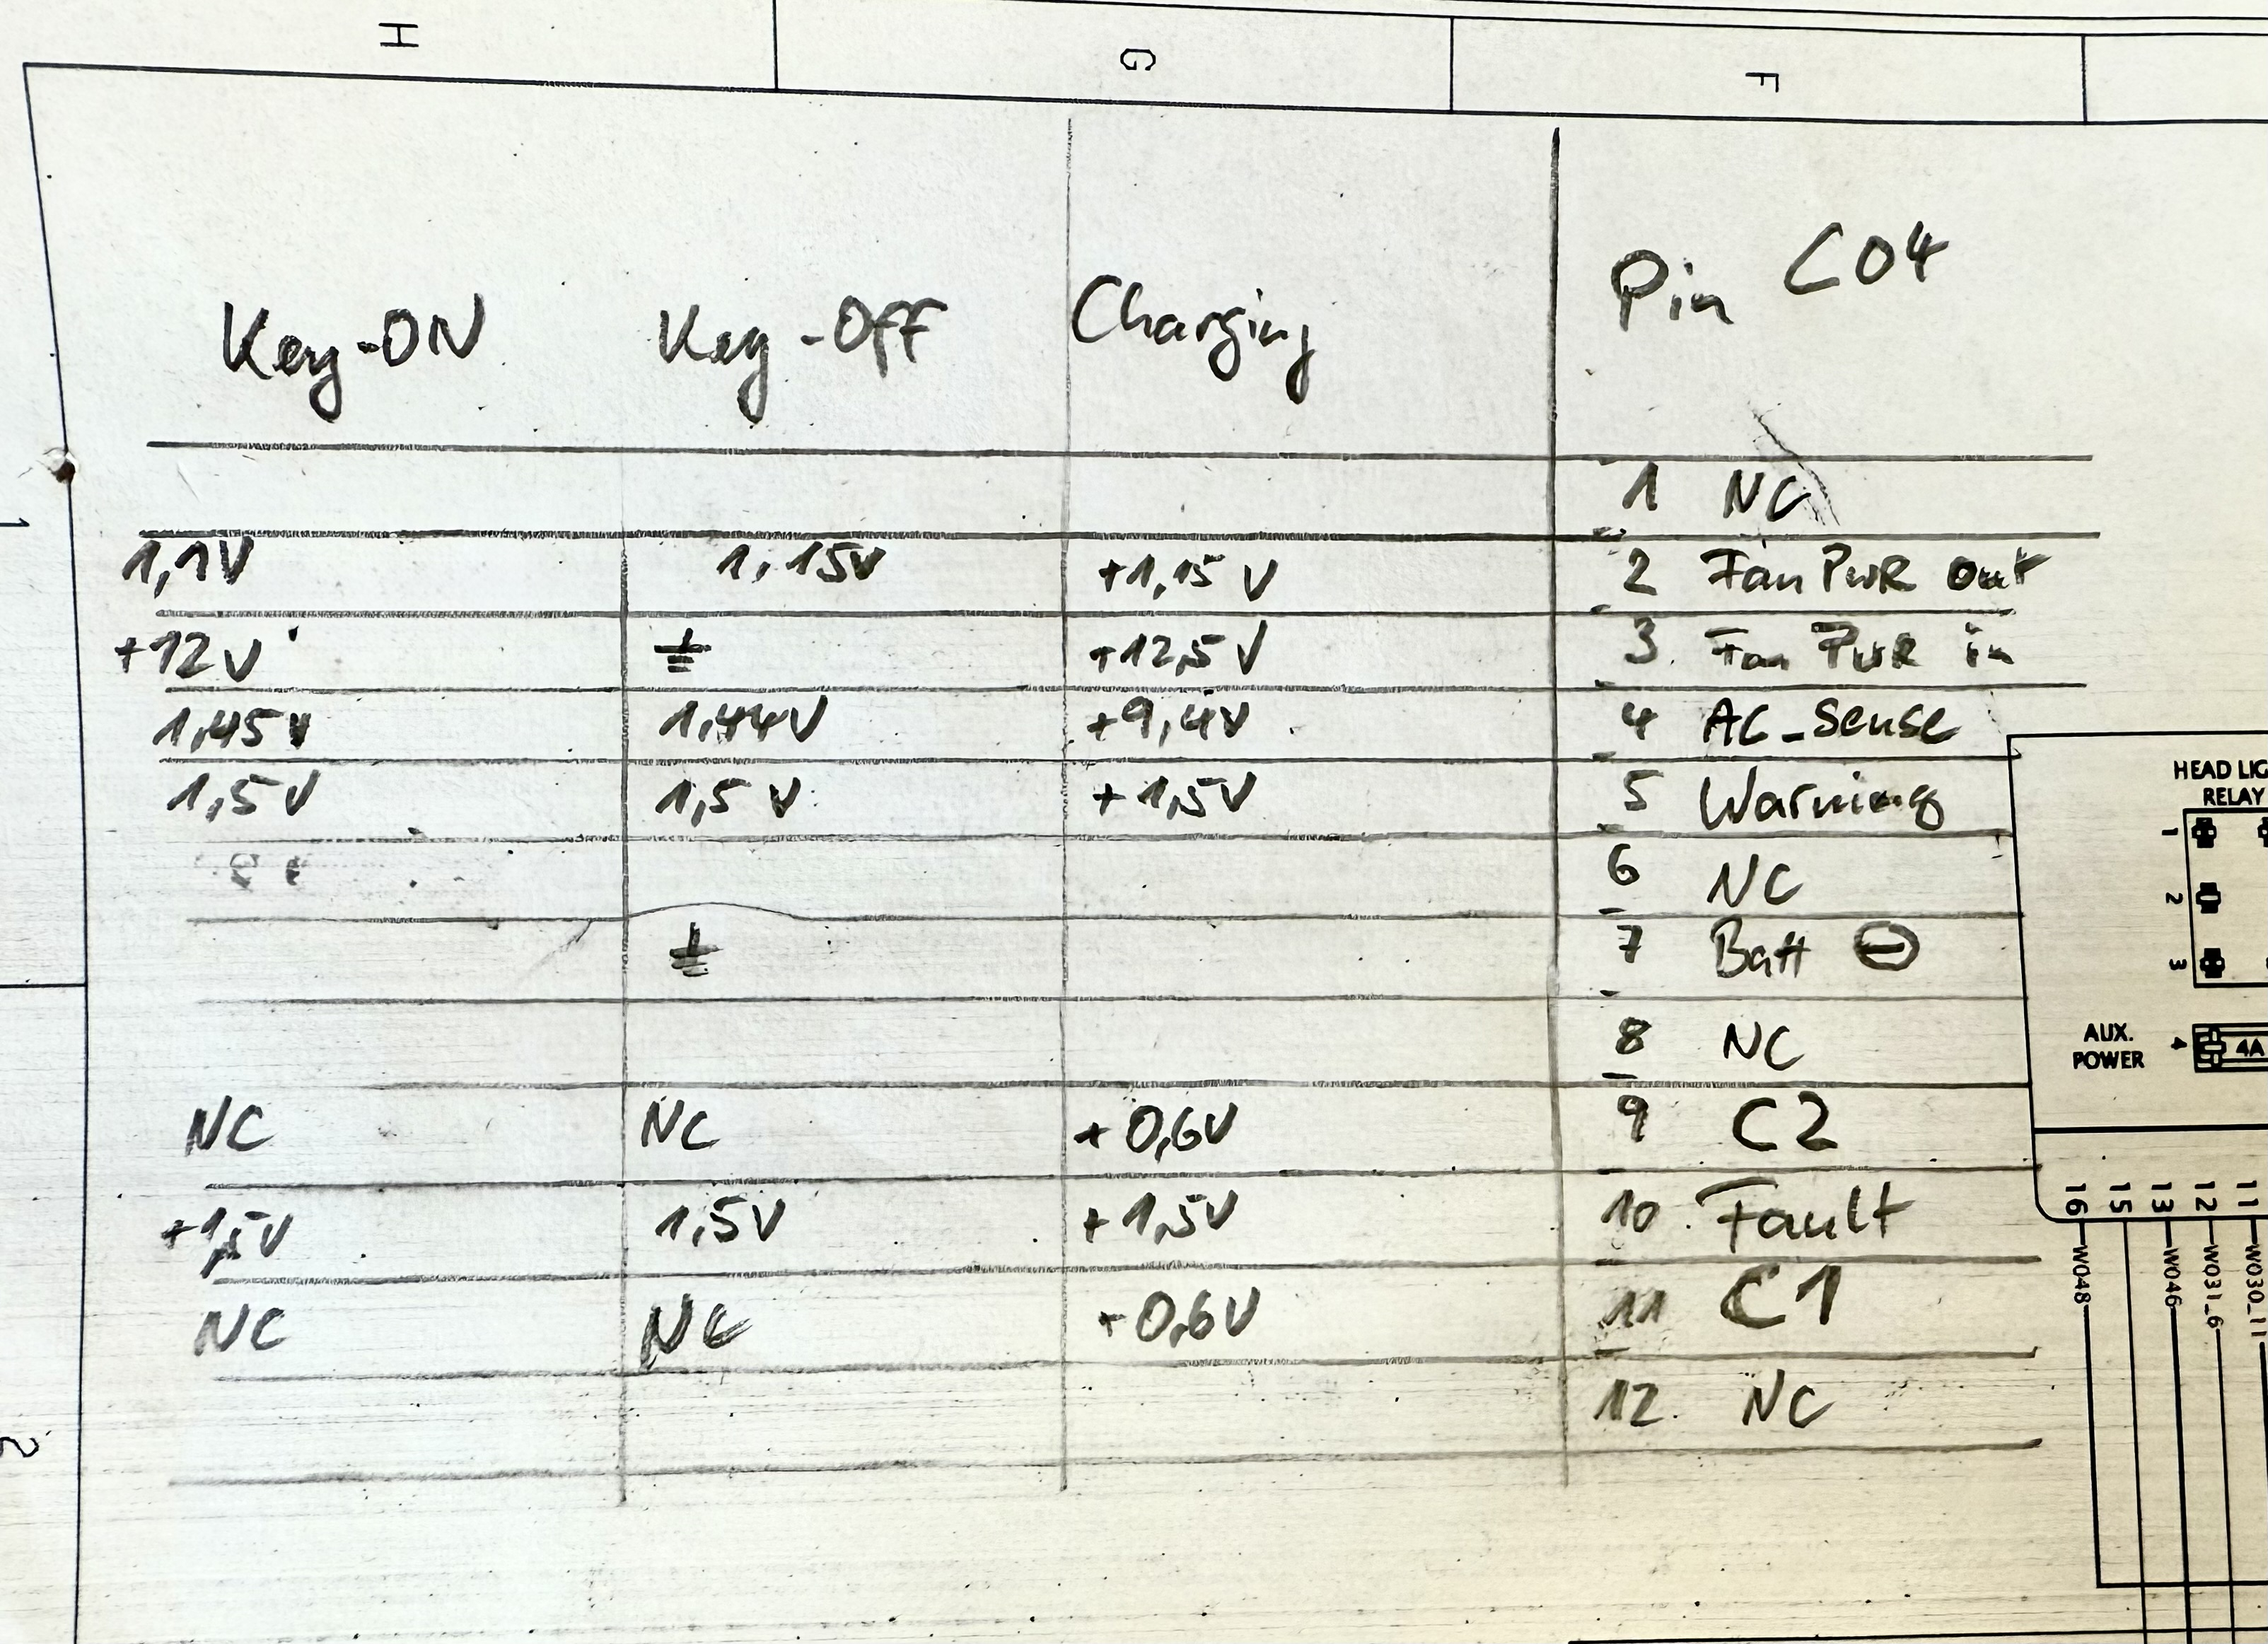 H G F
Key-ON Key-Off Charging Pin C04
1 NC
1,1V 1,15V +1,15 V 2 Fan PWR out
+12V ⏚ +12,5 V 3. Fan PWR in
1,45V 1,44V +9,4V 4 AC_Sense
1,5V 1,5 V +1,5V 5 Warning
6 NC
⏚ 7 Batt ⊖
8 NC
NC NC +0,6V 9 C2
+1,5V 1,5V +1,5V 10. Fault
NC NC +0,6V 11 C1
12. NC
1
2
HEAD LIG
RELAY
1
2
3
AUX.
POWER
4 4A
16 15 13 12 11
W048 W046 W031_6 W030_11